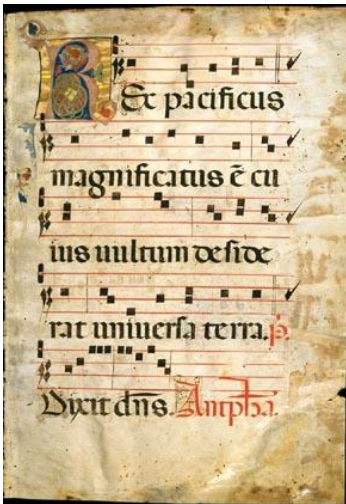 REx pacificus
magnificatus ē cu
ius uultum deside
rat uniuersa terra. p̄.
Dixit dn̄s. Antpħa.